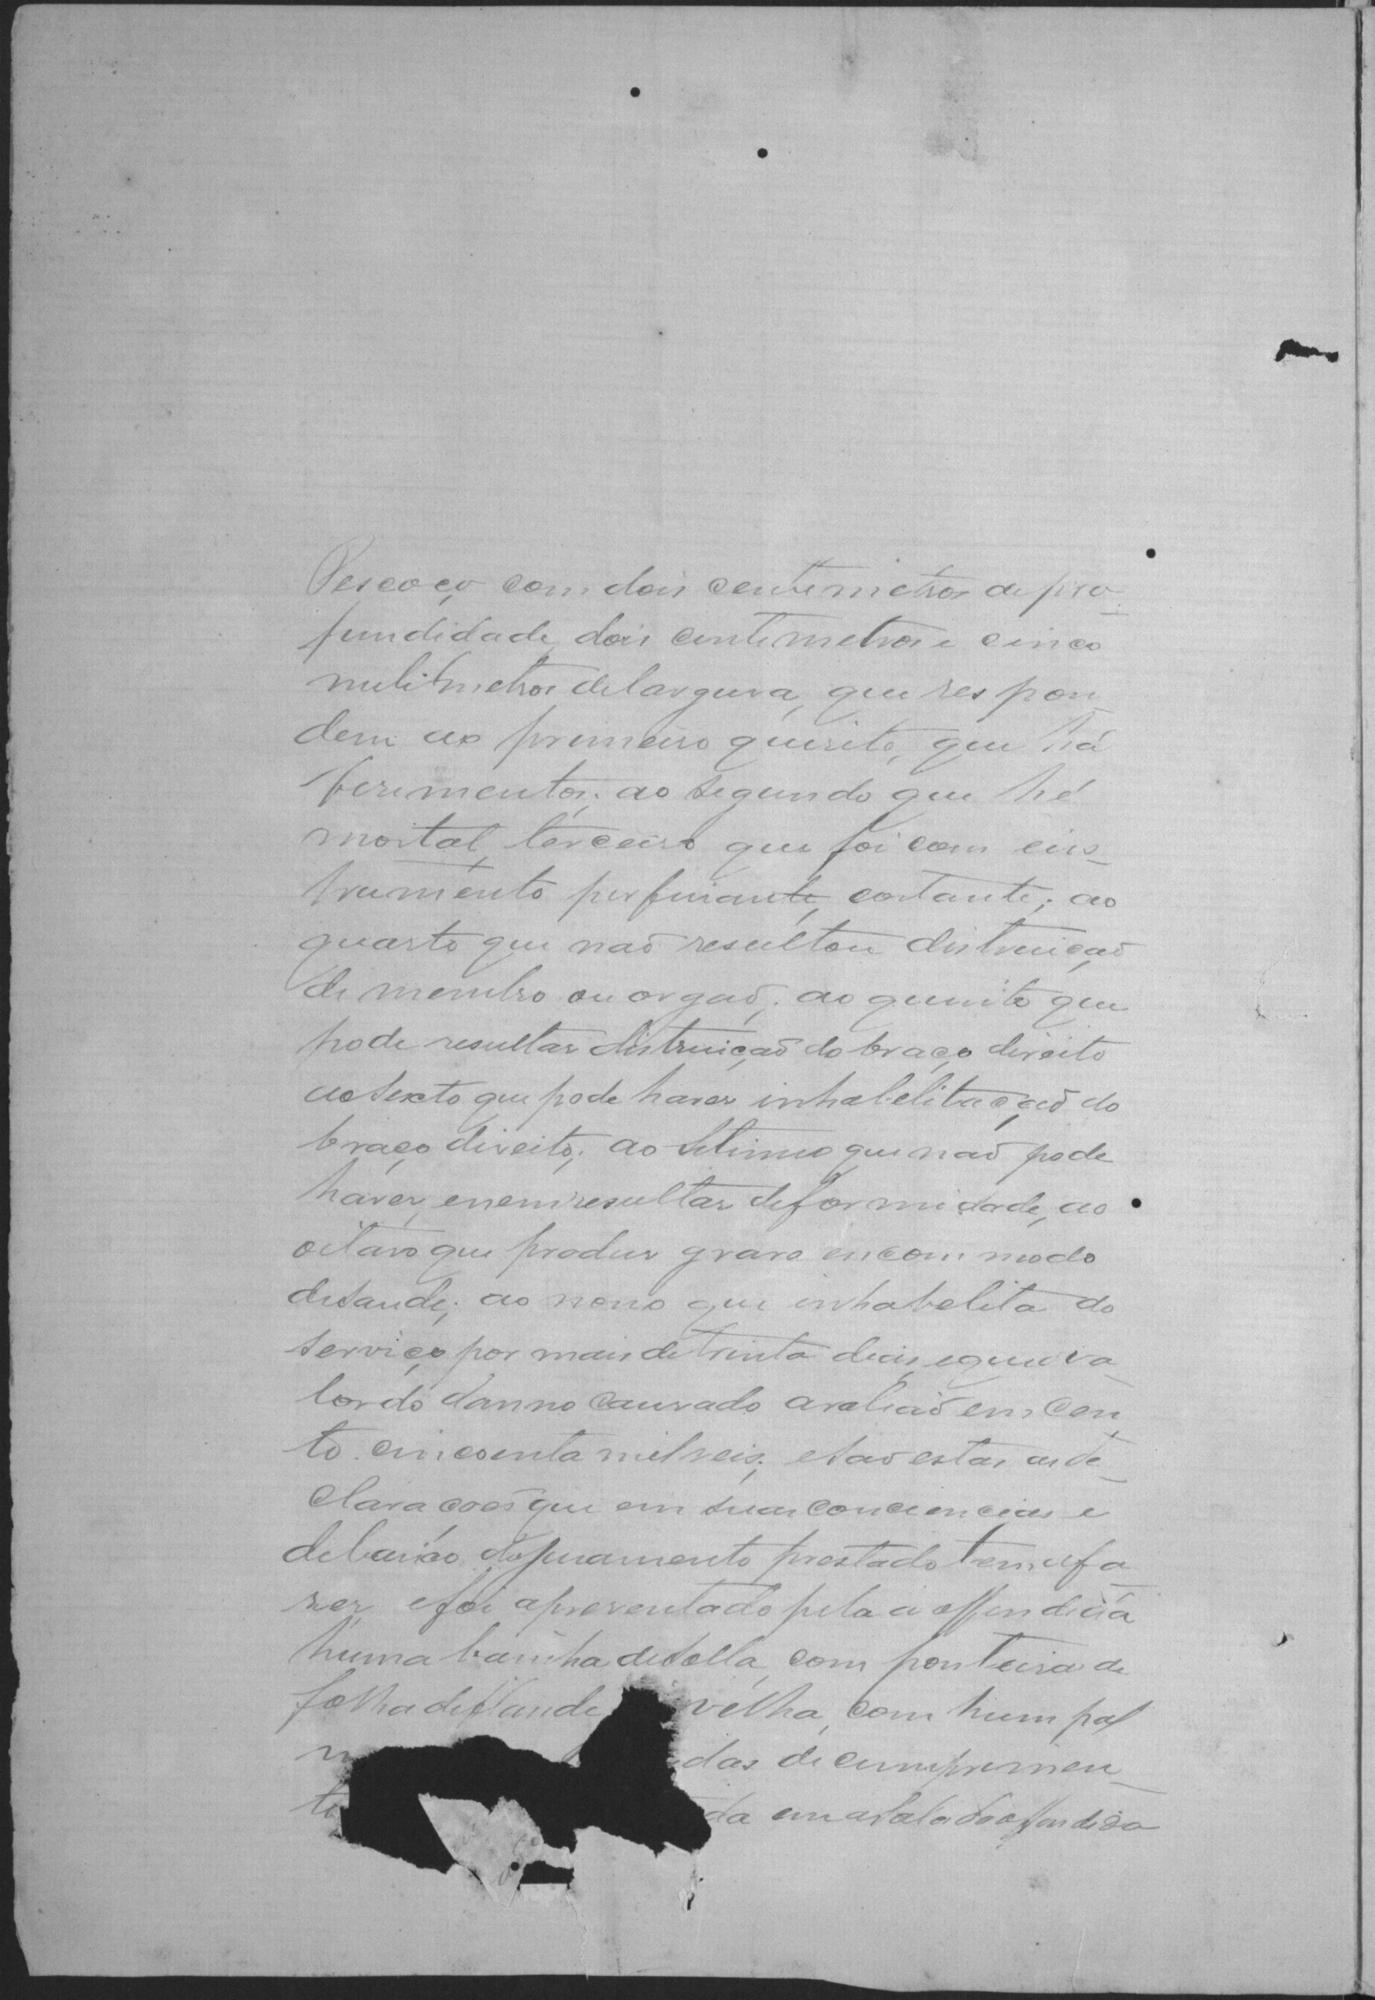 Pescoço com dois centimetros de pro-
fundidade, dois centimetros e cinco
milimetros de largura, que respon-
dem ao primeiro quisito, que há
ferimentos; ao segundo que hé
mortal, terceiro que foi com ins-
trumento perfurante, cortante; ao
quarto que naõ resultou distruiçaõ
de membro ou orgaõ; ao quinto que
pode resultar distruiçaõ do braço direito
ao sexto que pode haver inhabelitaçaõ do
braço direito; ao setimo que naõ pode
haver, e nem resultar deformidade, ao
oitavo que produs grave encommodo
de saude; ao nono que inhabelita do
serviço por mais de trinta dias, e que o va-
lor do danno causado avaliaõ em cen-
to cincoenta mil reis; e saõ estas as de-
claracoẽs que em suas conciencias e
debaixo do juramento prestado tem a fa-
zer, e foi apresentado pela a offendida
huma bainha de solla, com ponteira de
folha de flande velha, com hum pal
das de cumprimen-
da em a sala da offendida